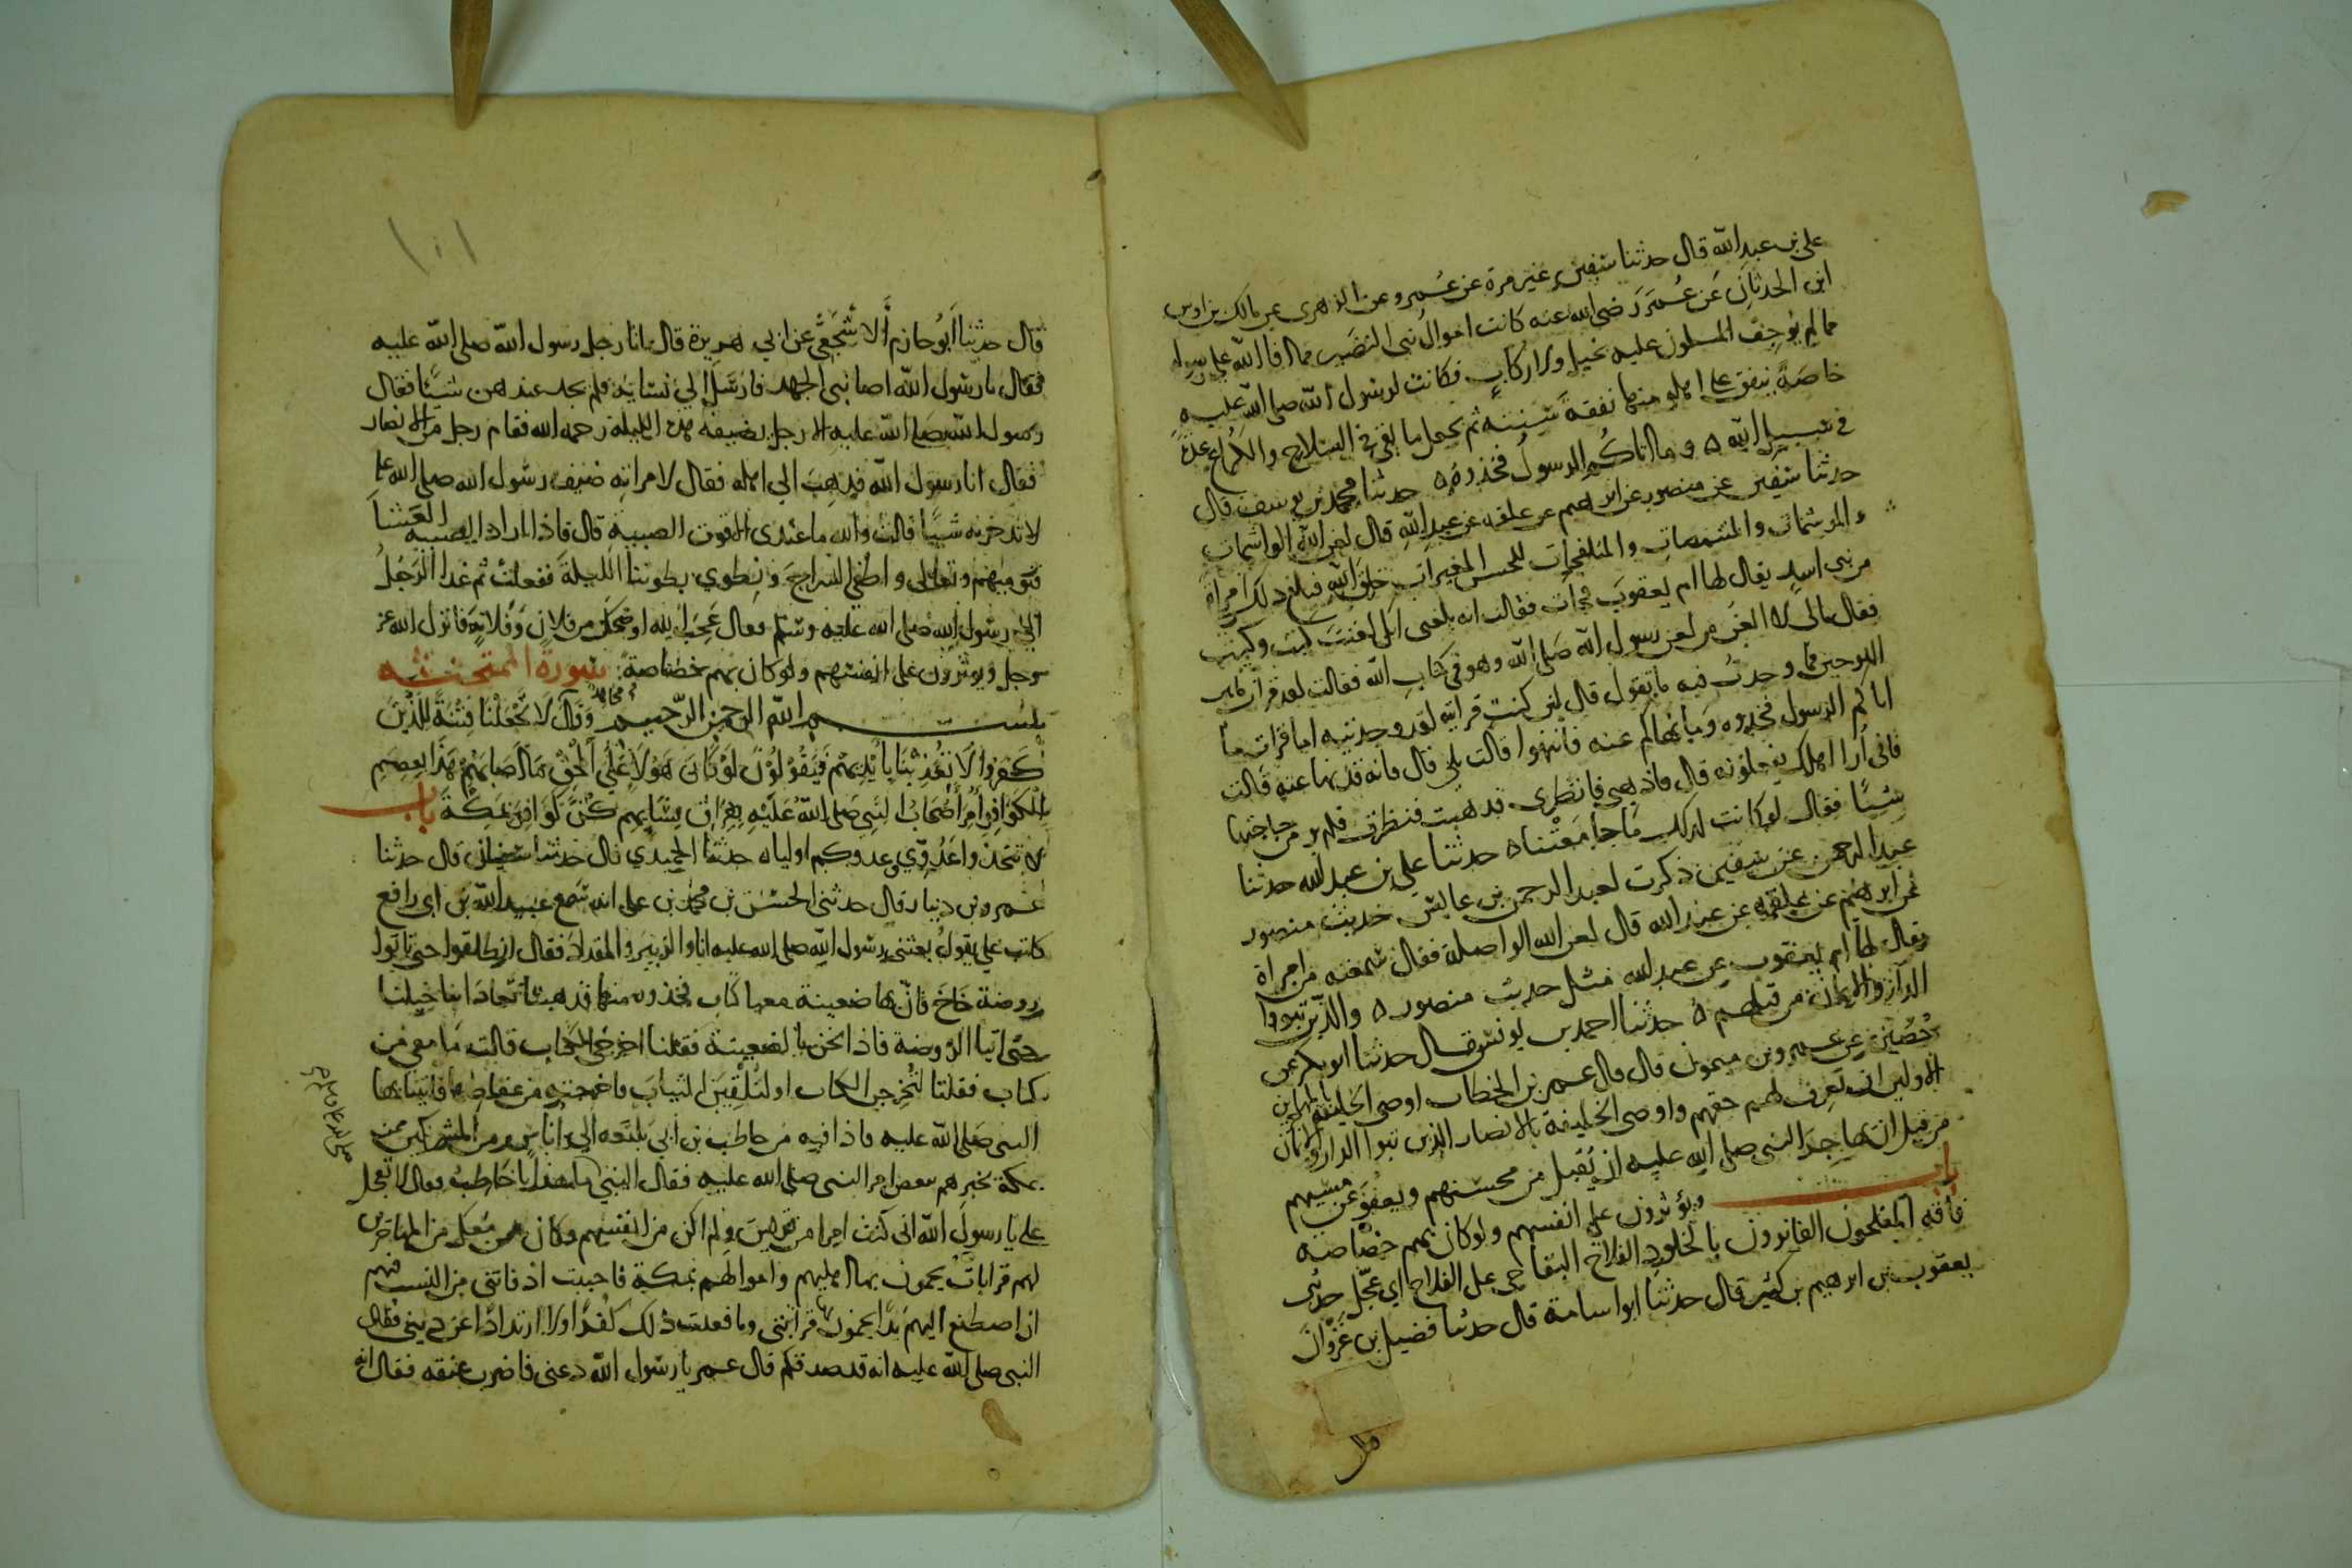 على بن عبد الله قال حدثنا سفين غير مرة عن عمرو عن الزهرى عن مالك بن اوس
ابن الحدثان عن عمر رضى الله عنه كانت اموال بنى النضير مما افا الله على رسوله
مما لم يوجف المسلمون عليه بخيل ولا ركاب فكانت لرسول الله صلى الله عليه
خاصة ينفق على اهله منها نفقة سنته ثم يجعل ما بقى فى السلاح والكراع عدة
فى سبيل الله ه وما اتاكم الرسول فخذوه ه حدثنا محمد بن يوسف قال
حدثنا سفين عن منصور عن ابرهيم عن علقمه عن عبد الله قال لعن الله الواشمات
والموشمات والمتنمصات والمتفلجات للحسن المغيرات خلق الله فبلغ ذلك امراة
من بنى اسد يقال لها ام يعقوب فجات فقالت انه بلغنى انك لعنت كيت وكيت
فقال مالى لا العن من لعن رسول الله صلى الله وهو فى كتاب الله فقالت لقد قرات ما بين
اللوحين فما وجدت فيه ما تقول قال لئن كنت قراتيه لقد وجدتيه اما قرات ما
اتاكم الرسول فخذوه وما نهاكم عنه فانتهوا قالت بلى قال فانه قد نهى عنه قالت
فانى ارا اهلك يفعلونه قال فاذهبى فانظرى فذهبت فنظرت فلم تر من حاجتها
شيئا فقال لو كانت كذلك ما جامعتنا ه حدثنا على بن عبد الله حدثنا
عبد الرحمن عن سفين ذكرت لعبد الرحمن بن عابس حديث منصور
عن ابرهيم عن علقمه عن عبد الله قال لعن الله الواصلة فقال سمعته من امراة
يقال لها ام يعقوب عن عبد الله مثل حديث منصور ه والذين تبووا
الدار والايمان من قبلهم ه حدثنا احمد بن يونس قال حدثنا ابو بكر عن
حصين عن عمرو بن ميمون قال قال عمر بن الخطاب اوصى الخليفة بالمهاجرين
الاولين ان تعرف لهم حقهم واوصى الخليفة بالانصار الذين تبوا الدار والايمان
من قبل ان يهاجر النبى صلى الله عليه ان يقبل من محسنهم ويعفو عن مسيهم
باب ويؤثرون على انفسهم ولو كان بهم خصاصه
فاقه المفلحون الفائزون بالخلود الفلاح البقا حى على الفلاح اى عجل حدثنى
يعقوب بن ابرهيم بن كثير قال حدثنا ابو اسامة قال حدثنا فضيل بن غزوان
قال
١٠١
قال حدثنا ابو حازم الاشجعى عن ابى هريرة قال اتا رجل رسول الله صلى الله عليه
فقال يا رسول الله اصابنى الجهد فارسل الى نسايه فلم يجد عندهن شيئا فقال
رسول الله صلى الله عليه الا رجل يضيفه هذه الليلة رحمه الله فقام رجل من الانصار
فقال انا يا رسول الله فذهب الى اهله فقال لامراته ضيف رسول الله صلى الله عليه
لا تدخريه شيئا قالت والله ما عندى الا قوت الصبية قال فاذا اراد الصبيه العشا
فنوميهم وتعالى واطفى السراج ونطوى بطوننا الليلة ففعلت ثم غدا الرجل
الى رسول الله صلى الله عليه وسلم فقال عجب الله او ضحك من فلان وفلانة فانزل الله عز
وجل ويوثرون على انفسهم ولو كان بهم خصاصة سورة الممتحنه
بسم الله الرحمن الرحيم وقال مجاهد لا تجعلنا فتنة للذين
كفروا لا تعذبنا بايديهم فيقولون لو كان هولا على الحق ما اصابهم هذا بعصم
الكوافر امر اصحاب النبى صلى الله عليه بفراق نسايهم كن كوافر بمكة باب
لا تتخذوا عدوى وعدوكم اوليا ه حدثنا الحميدى قال حدثنا سفيان قال حدثنا
عمرو بن دينار قال حدثنى الحسن بن محمد بن على انه سمع عبيد الله بن ابى رافع
كاتب على يقول بعثنى رسول الله صلى الله عليه انا والزبير والمقداد فقال انطلقوا حتى تاتوا
روضة خاخ فان بها ضعينة معها كتاب فخذوه منها فذهبنا تعادا بنا خيلنا
حتى اتينا الروضة فاذا نحن بالضعينة فقلنا اخرجى الكتاب قالت ما معى من
كتاب فقلنا لتخرجن الكتاب او لنلقين الثياب فاخرجته من عقاصها فاتينا بها
النبى صلى الله عليه فاذا فيه من حاطب بن ابى بلتعه الى اناس من المشركين ممن
بمكة يخبرهم ببعض امر النبى صلى الله عليه فقال النبى ما هذا يا حاطب فقال لا تعجل
على يا رسول الله انى كنت امرا من قريش ولم اكن من انفسهم وكان من معك من المهاجرين
لهم قرابات يحمون بها اهليهم واموالهم بمكة فاحببت اذ فاتنى من النسب فيهم
ان اصطنع اليهم يدا يحمون بها قرابتى وما فعلت ذلك كفرا ولا ارتدادا عن دينى فقال
النبى صلى الله عليه انه قد صدقكم قال عمر يا رسول الله دعنى فاضرب عنقه فقال انه